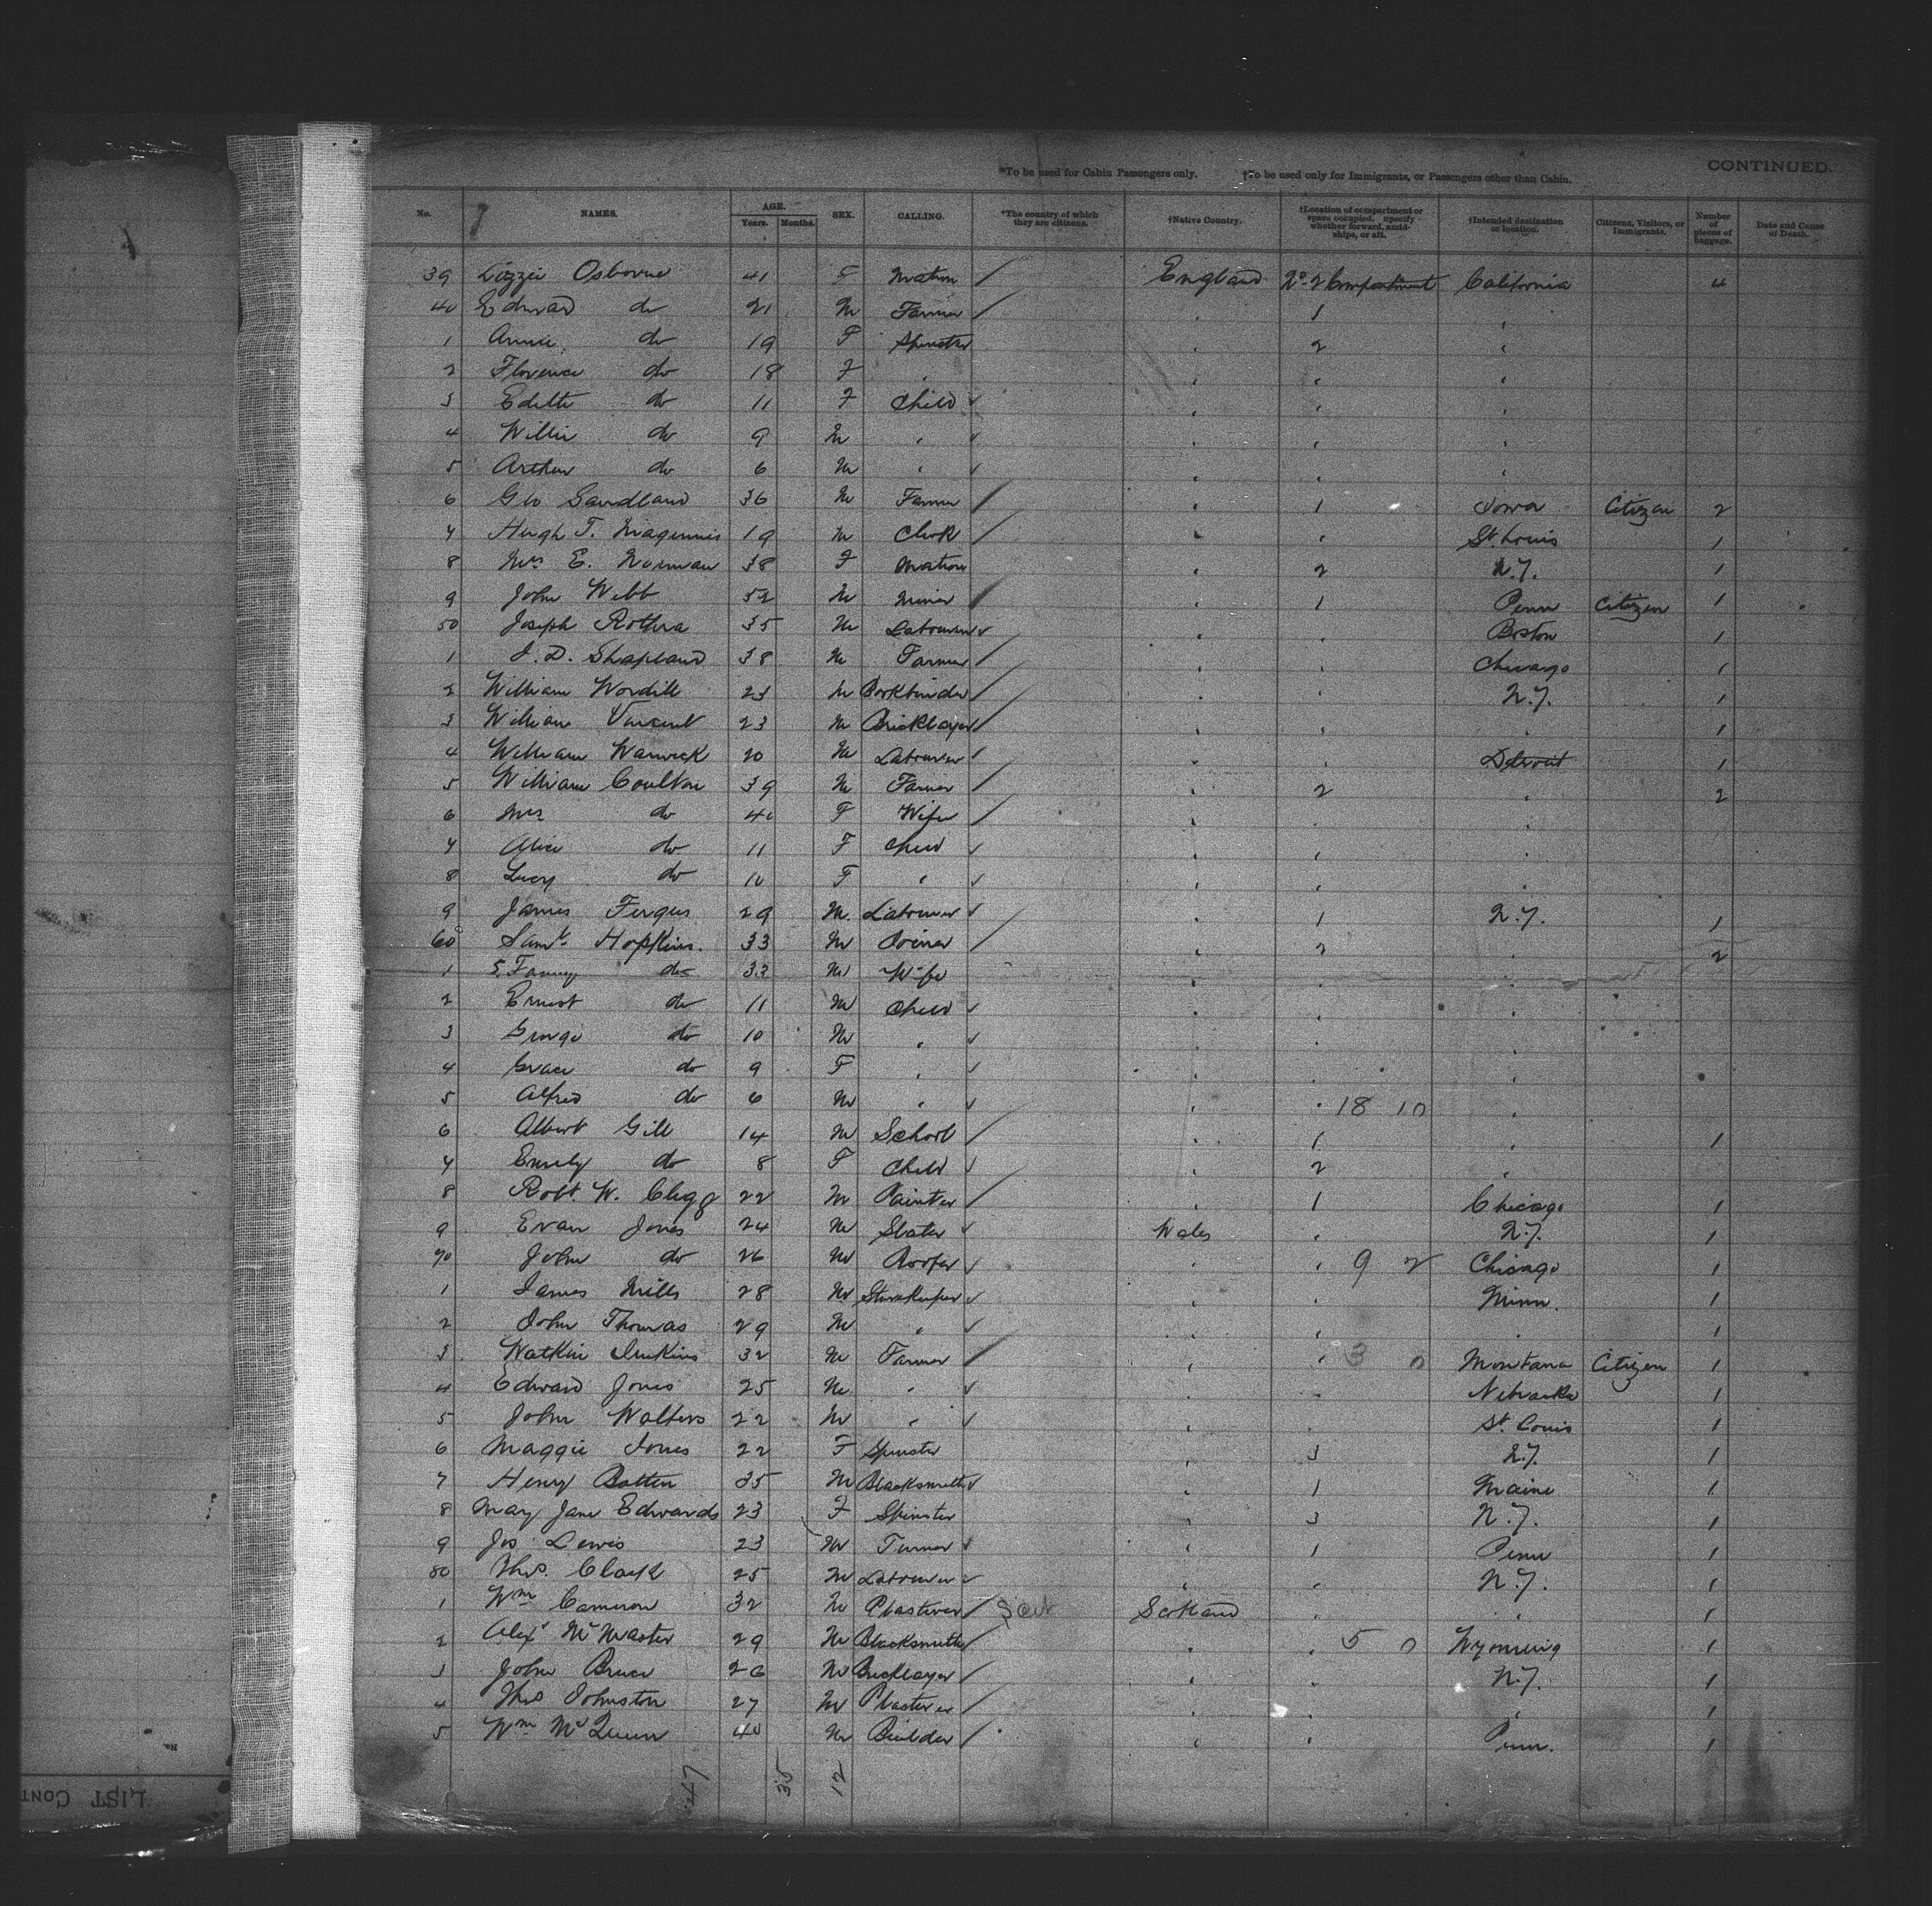 CONTINUED.
*To be used for Cabin Passengers only. †To be used only for Immigrants, or Passengers other than Cabin.
No. NAMES. AGE. Years. Months. SEX. CALLING. *The country of which they are citizens. †Native Country. †Location of compartment or space occupied. specify whether forward, amidships, or aft. †Intended destination or location. Citizens, Visitors, or Immigrants. Number of pieces of baggage. Date and Cause of Death.
39 Lizzie Osborne 41 F Matron / England No. 2 Compartment California 4
40 Edward do 21 M Farmer / " 1 "
1 Annie do 19 F Spinster " 2 "
2 Florence do 18 F " " " "
3 Edith do 11 F Child ✓ " " "
4 Willie do 9 M " ✓ " " "
5 Arthur do 6 M " ✓ " " "
6 Geo Sandland 36 M Farmer / " 1 Iowa Citizen 2
7 Hugh T. Magennis 19 M Clerk / " " St. Louis 1
8 Mrs E. Norman 38 F Matron " 2 N.Y. 1
9 John Webb 52 M Miner / " 1 Penn Citizen 1
50 Joseph Rothra 35 M Labourer ✓ " " Boston 1
1 J. D. Shapland 38 M Farmer / " " Chicago 1
2 William Wordill 23 M Bookbinder / " " N.Y. 1
3 William Vincent 23 M Bricklayer / " " " 1
4 William Warwick 20 M Labourer ✓ " " Detroit 1
5 William Coulton 39 M Farmer / " 2 " 2
6 Mrs do 40 F Wife / " " "
7 Alice do 11 F Child ✓ " " "
8 Lucy do 10 F " ✓ " " "
9 James Fergus 29 M. Labourer ✓ " 1 N.Y. 1
60 Saml. Hopkins. 33 M Joiner / " 2 " 2
1 Fanny do 33 M Wife " " "
2 Ernest do 11 M Child ✓ " " "
3 George do 10 M " ✓ " " "
4 Grace do 9 F " ✓ " " "
5 Alfred do 6 M " ✓ " " 18 10 "
6 Albert Gill 14 M School / " 1 " 1
7 Emily do 8 F Child ✓ " 2 "
8 Robt. W. Clegg 22 M Painter / " 1 Chicago 1
9 Evan Jones 24 M Slater ✓ Wales " N.Y. 1
70 John do 26 M Roofer ✓ " " 9 2 Chicago 1
1 James Mills 28 M Storekeeper ✓ " " Minn. 1
2 John Thomas 29 M " ✓ " " " 1
3 Watkin Jenkins 32 M Farmer / " " 3 0 Montana Citizen 1
4 Edward Jones 25 M " ✓ " " Nebraska 1
5 John Walters 22 M " ✓ " " St. Louis 1
6 Maggie Jones 22 F Spinster " 3 N.Y. 1
7 Henry Batten 35 M Blacksmith ✓ " 1 Maine 1
8 Mary Jane Edwards 23 F Spinster " 3 N.Y. 1
9 Jos Lewis 23 M Turner ✓ " 1 Penn 1
80 Thos. Clark 25 M Labourer ✓ " " N.Y. 1
1 Wm Cameron 32 M Plasterer / Scot Scotland " " 1
2 Alexr McMaster 29 M Blacksmith / " " 5 0 Wyoming 1
3 John Bruce 26 M Bricklayer / " " N.Y. 1
4 Thos Johnston 27 M Plasterer / " " " 1
5 Wm McQueen 40 M Builder / " " Penn. 1
47 35 12
No.
LIST CONT